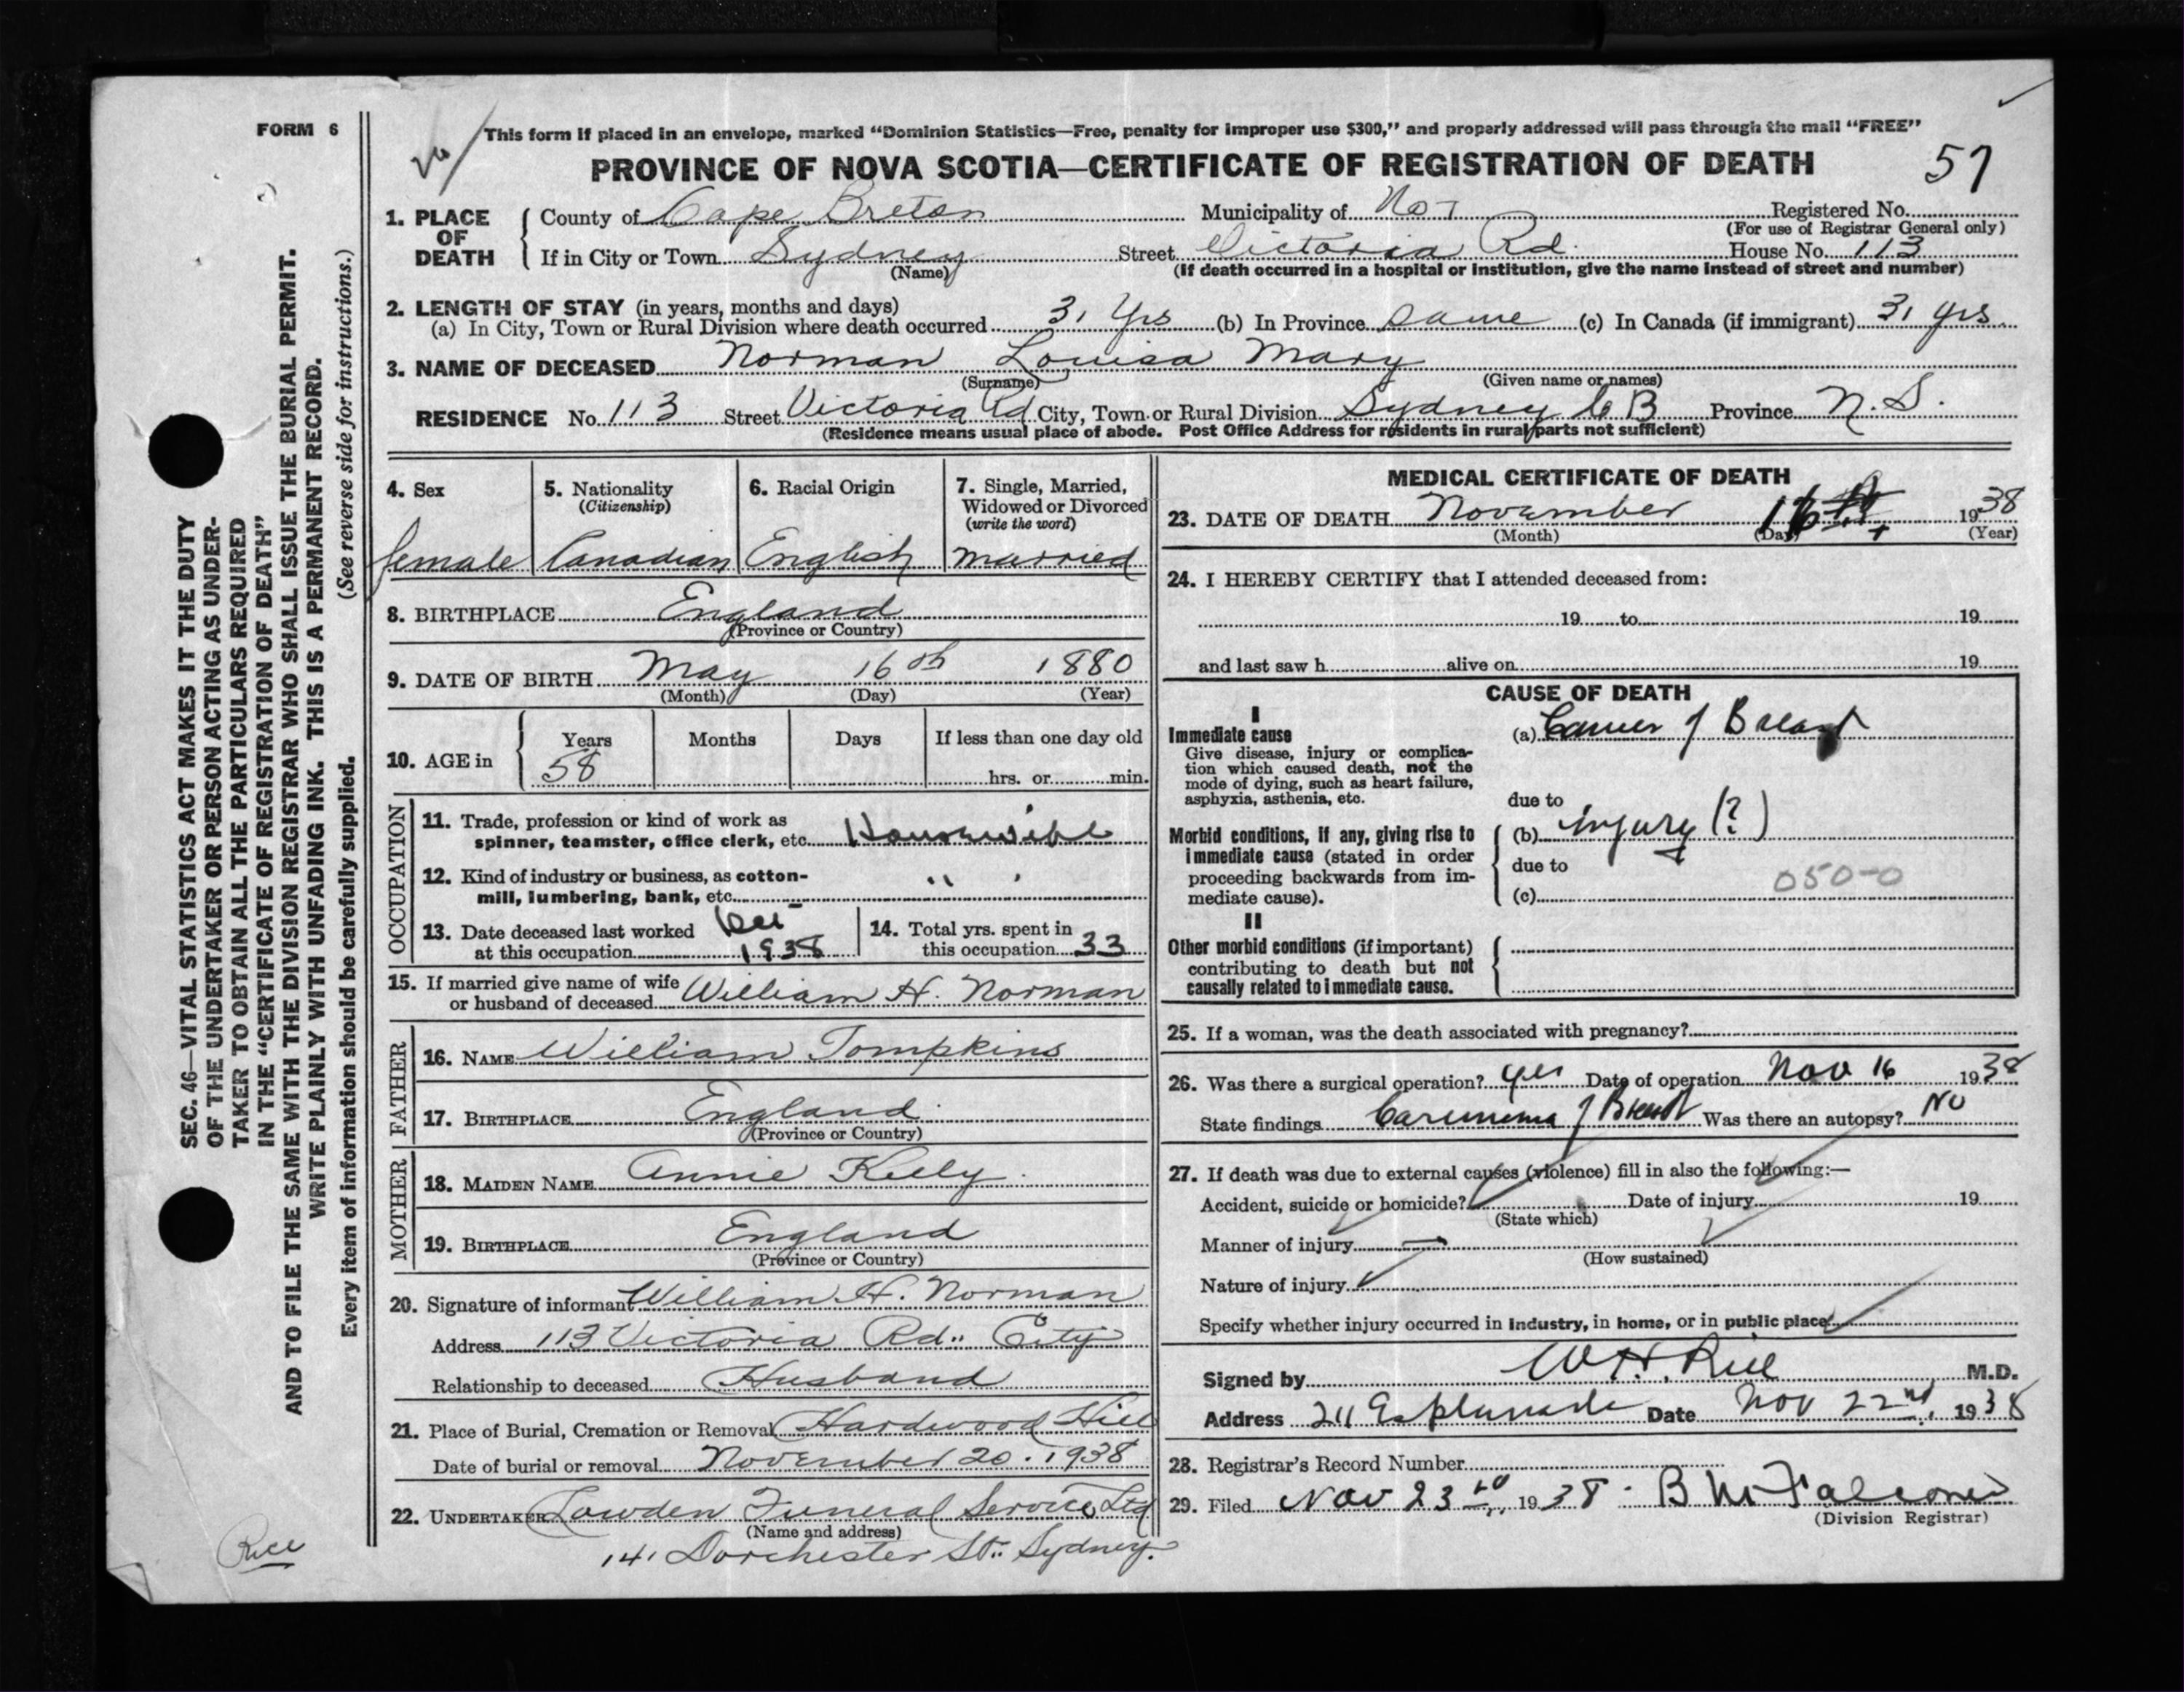 FORM 6
This form if placed in an envelope, marked “Dominion Statistics—Free, penalty for improper use $300,” and properly addressed will pass through the mail “FREE”
PROVINCE OF NOVA SCOTIA—CERTIFICATE OF REGISTRATION OF DEATH
57
1. PLACE OF DEATH { County of Cape Breton Municipality of No 7 Registered No.
(For use of Registrar General only)
If in City or Town Sydney Street Victoria Rd. House No. 113
(Name) (If death occurred in a hospital or institution, give the name instead of street and number)
2. LENGTH OF STAY (in years, months and days)
(a) In City, Town or Rural Division where death occurred 31 Yrs (b) In Province Same (c) In Canada (if immigrant) 31 yrs
3. NAME OF DECEASED Norman Louisa Mary
(Surname) (Given name or names)
RESIDENCE No. 113 Street Victoria Rd City, Town or Rural Division Sydney C B Province N.S.
(Residence means usual place of abode. Post Office Address for residents in rural parts not sufficient)
4. Sex
female
5. Nationality
(Citizenship)
Canadian
6. Racial Origin
English
7. Single, Married,
Widowed or Divorced
(write the word)
married
8. BIRTHPLACE England
(Province or Country)
9. DATE OF BIRTH May 16th 1880
(Month) (Day) (Year)
10. AGE in { Years Months Days If less than one day old
58 hrs. or min.
OCCUPATION
11. Trade, profession or kind of work as
spinner, teamster, office clerk, etc. Housewife
12. Kind of industry or business, as cotton-
mill, lumbering, bank, etc. " "
13. Date deceased last worked
at this occupation 1938
14. Total yrs. spent in
this occupation 33
15. If married give name of wife
or husband of deceased William H. Norman
FATHER
16. NAME William Tompkins
17. BIRTHPLACE England
(Province or Country)
MOTHER
18. MAIDEN NAME Annie Kelly
19. BIRTHPLACE England
(Province or Country)
20. Signature of informant William H. Norman
Address 113 Victoria Rd.. City
Relationship to deceased Husband
21. Place of Burial, Cremation or Removal Hardwood Hill
Date of burial or removal November 20. 1938
22. UNDERTAKER Lowden Funeral Service Ltd
(Name and address)
141 Dorchester St.. Sydney.
MEDICAL CERTIFICATE OF DEATH
23. DATE OF DEATH November 16 1938
(Month) (Day) (Year)
24. I HEREBY CERTIFY that I attended deceased from:
19 to 19
and last saw h alive on 19
CAUSE OF DEATH
I
Immediate cause (a) Cancer of Breast
Give disease, injury or complica-
tion which caused death, not the
mode of dying, such as heart failure,
asphyxia, asthenia, etc.
due to
Morbid conditions, if any, giving rise to
immediate cause (stated in order
proceeding backwards from im-
mediate cause).
(b) injury (?)
due to
(c) 050-0
II
Other morbid conditions (if important)
contributing to death but not
causally related to immediate cause.
25. If a woman, was the death associated with pregnancy?
26. Was there a surgical operation? yes Date of operation Nov 16 1938
State findings Carcinoma of Breast Was there an autopsy? No
27. If death was due to external causes (violence) fill in also the following:—
Accident, suicide or homicide? Date of injury 19
(State which)
Manner of injury
(How sustained)
Nature of injury
Specify whether injury occurred in industry, in home, or in public place
Signed by W.H. Rice M.D.
Address 211 Esplanade Date Nov 22nd, 1938
28. Registrar’s Record Number
29. Filed Nov 23rd, 1938. B McFalconer
(Division Registrar)
SEC. 46—VITAL STATISTICS ACT MAKES IT THE DUTY
OF THE UNDERTAKER OR PERSON ACTING AS UNDER-
TAKER TO OBTAIN ALL THE PARTICULARS REQUIRED
IN THE “CERTIFICATE OF REGISTRATION OF DEATH”
AND TO FILE THE SAME WITH THE DIVISION REGISTRAR WHO SHALL ISSUE THE BURIAL PERMIT.
WRITE PLAINLY WITH UNFADING INK. THIS IS A PERMANENT RECORD.
Every item of information should be carefully supplied. (See reverse side for instructions.)
Rice